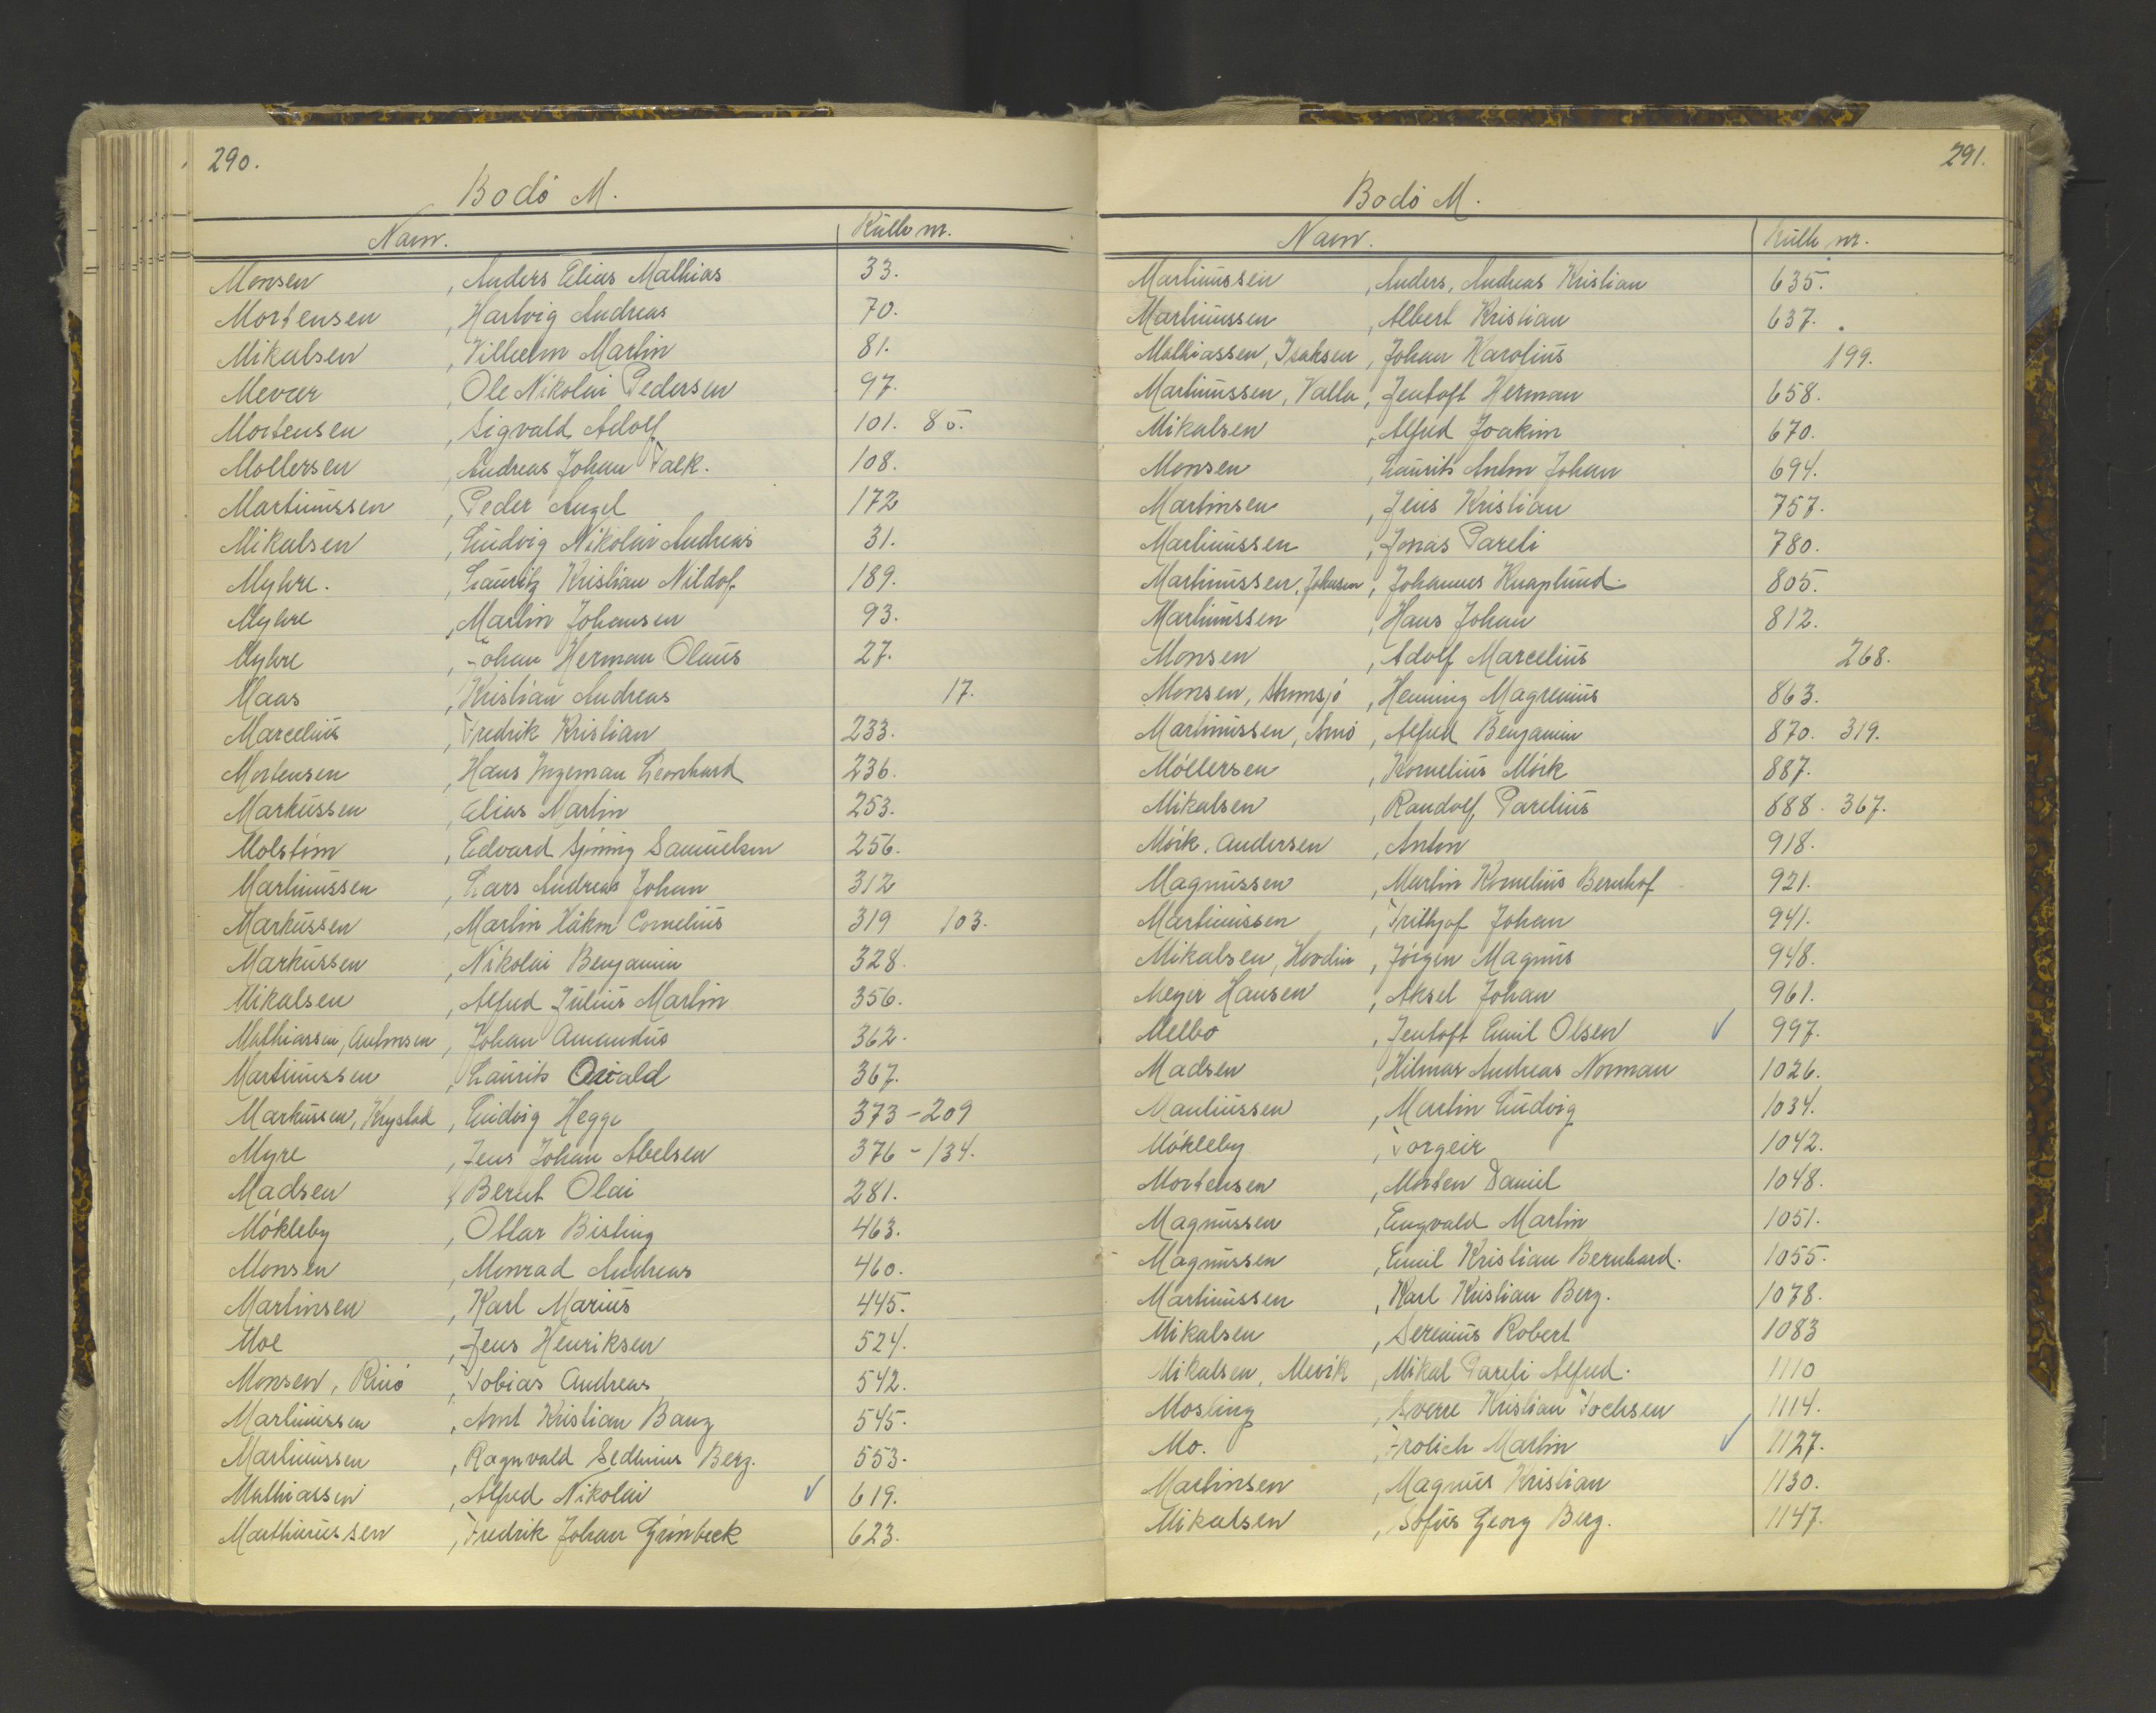 290.
Bodö M.
Navn. Rulle nr.
Monsen, Anders Elias Mathias 33.
Mortensen, Hartvig Andreas 70.
Mikalsen, Vilhelm Martin 81.
Mevær, Ole Nikolai Pedersen 97.
Mortensen, Sigvald Adolf 101. 85.
Möllersen, Andreas Johan Falk. 108.
Martinussen, Peder Angel 172
Mikalsen, Ludvig Nikolai Andreas 31.
Myhre., Lauritz Kristian Nildof 189.
Myhre, Martin Johansen 93.
Myhre, Johan Herman Olaus 27.
Maas, Kristian Andreas 17.
Marcelius, Fredrik Kristian 233.
Mortensen, Hans Ingeman Leonhard 236.
Markussen, Elias Martin 253.
Edvard Samuelsen 256.
Martinussen, Lars Andreas Johan 312
Markussen, Martin Håkon Cornelius 319 103.
Markussen, Nikolai Benjamin 328.
Mikalsen, Alfred Julius Martin 356.
Mathiassen, Antonsen, Johan Amandus 362.
Martinussen, Laurits Osvald 367.
Markussen, Krystad, Ludvig Hegge 373-209
Myre, Jens Johan Abelsen 376-134.
Madsen, Bernt Olai 281.
Mökleby, Ottar Bisting 463.
Monsen, Monrad Andreas 460.
Martinsen, Karl Marius 445.
Moe, Jens Henriksen 524.
Monsen, Rinö, Tobias Andreas 542.
Martinussen, Arnt Kristian Bang 545.
Martinussen, Ragnvald Sedenius Berg. 553.
Mathiassen, Alfred Nikolai ✓ 619.
Marthinussen, Fredrik Johan Grönbeck 623.
291.
Bodö M.
Navn. Rulle nr.
Martinussen, Anders, Andreas Kristian 635.
Martinussen, Albert Kristian 637.
Mathiassen, Isaksen, Johan Karolius 199.
Martinussen, Valla, Jentoft Herman 658.
Mikalsen, Alfred Joakim 670.
Monsen, Laurits Anton Johan 694.
Martinsen, Jens Kristian 757.
Martinussen, Jonas Pareli 780.
Martinussen, Johansen, Johannes Knaplund. 805.
Martinussen, Hans Johan 812.
Monsen, Adolf Marcelius 268.
Monsen, Henning Magrenius 863.
Martinussen, Arnö, Alfred Benjamin 870. 319.
Möllersen, Kornelius Mörk 887.
Mikalsen, Randolf Parelius 888. 367.
Mörk, Andersen, Anton 918.
Magnussen, Martin Kornelius Bernhof 921.
Martinussen, Frithjof Johan 941.
Mikalsen, Hovdin, Jörgen Magnus 948.
Meyer Hansen, Aksel Johan 961.
Melbo, Jentoft Emil Olsen ✓ 997.
Madsen, Hilmar Andreas Norman 1026.
Mauliussen, Martin Ludvig 1034.
Mökleby, Torgeir 1042.
Mortensen, Morten Daniel 1048.
Magnussen, Engvald Martin 1051.
Magnussen, Emil Kristian Bernhard. 1055.
Martinussen, Karl Kristian Berg. 1078.
Mikalsen, Serenius Robert 1083
Mikalsen, Mevik, Mikal Pareli Alfred. 1110
Mosling, Sverre Kristian Tochsen 1114.
Mo., Frolich Martin ✓ 1127.
Martinsen, Magnus Kristian 1130.
Mikalsen, Sofus Georg Berg. 1147.